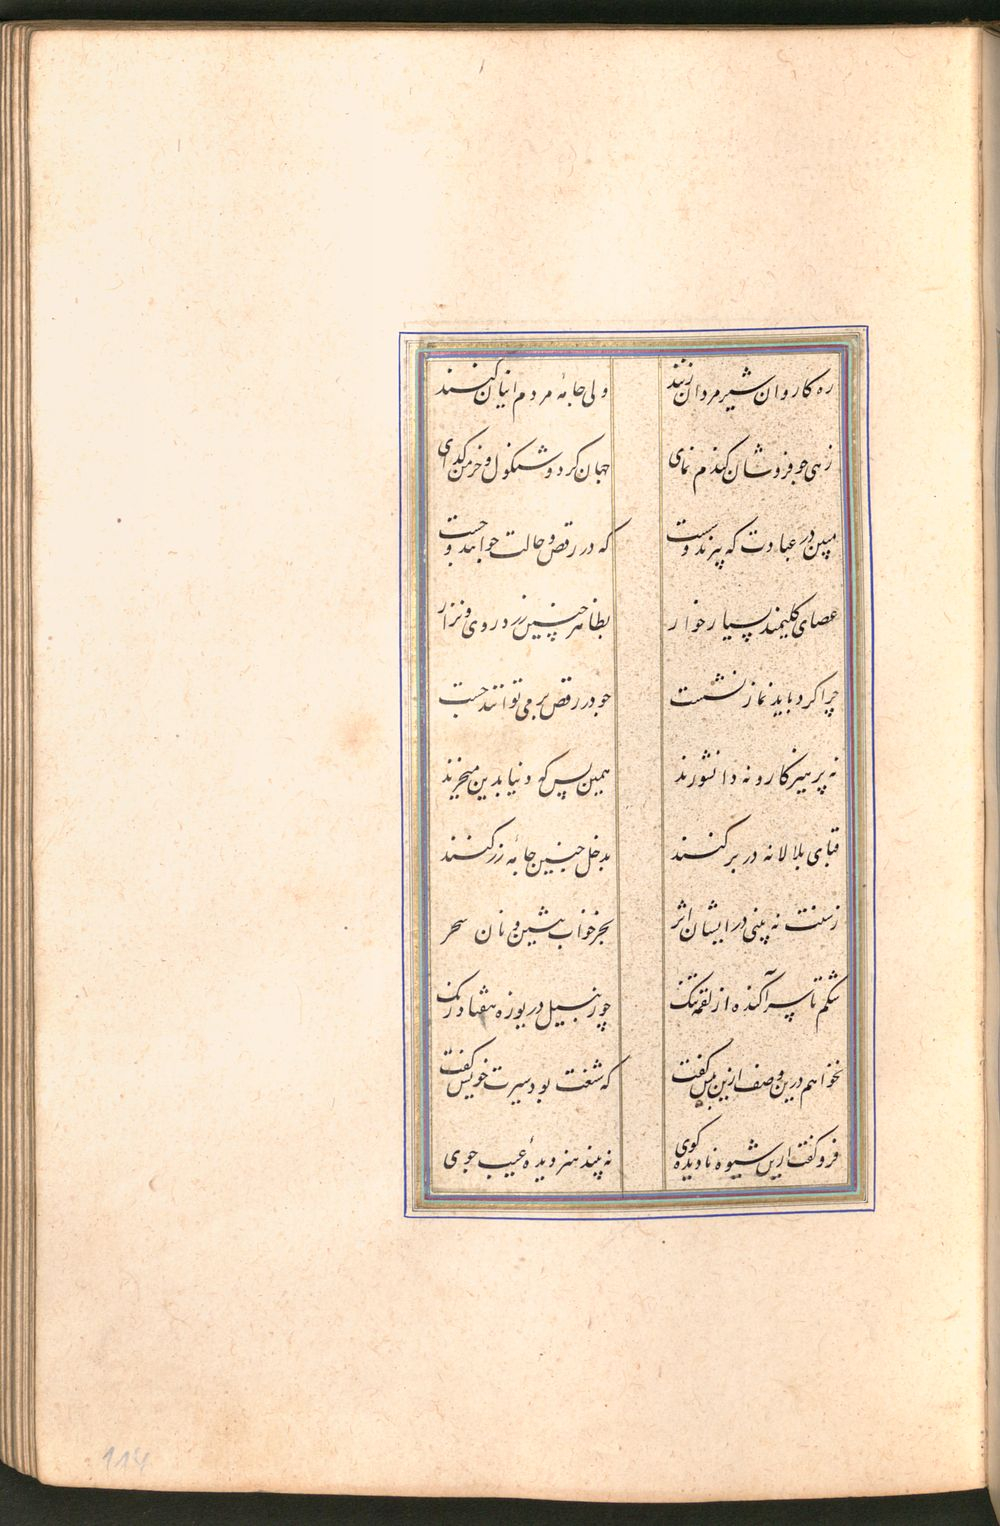 ره کاروان شیر مردان زنند ولی جامهٔ مردم اینان کنند
زهی جو فروشان کندم نمای جهان کرد و شبکوک و خرمن کدای
مبین در عبادت که پیرند و سست که در رقص و حالت جوانند و چست
عصای کلیمند بسیار خوار بظاهر چنین زرد روی و نزار
چرا کرد باید نماز نشست چو در رقص بر می توانند جست
نه پرهیزکار و نه دانشورند همین بس که دنیا بدین میخرند
قبای بلالانه در بر کنند بدخل حبش جامهٔ زر کنند
ز سنت نه بینی در ایشان اثر بجز خواب پیشین و نان سحر
شکم تا سر آکنده از لقمه تنک چو زنبیل دریوزه هفتاد رنک
نخواهم درین وصف ازین بیش کفت که شنعت بود سیرت خویش کفت
فرو کفت ازین شیوه نادیده کوی نه بیند هنر دیدهٔ عیب جوی
114